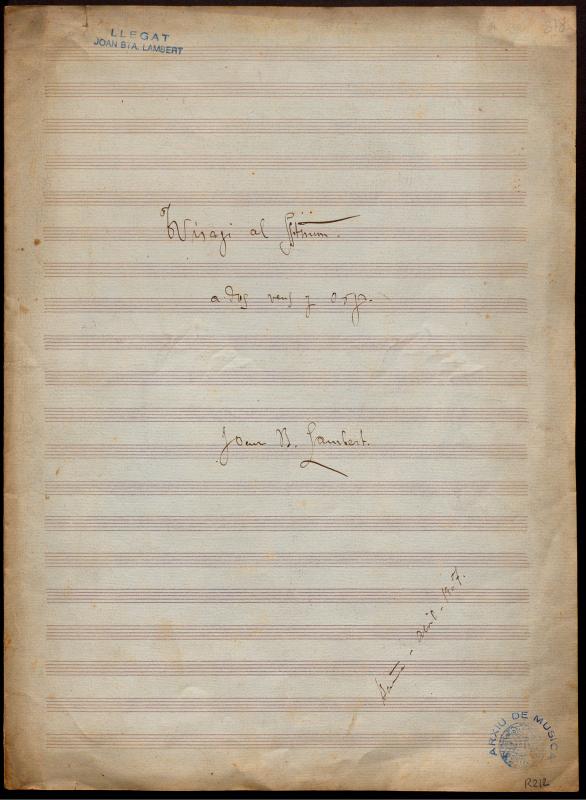 LLEGAT
JOAN BTA. LAMBERT
Trisagi al Ssm.
a dos veus y orga.
Joan B. Lambert.
abril - 1907.
ARXIU DE MUSICA
R212